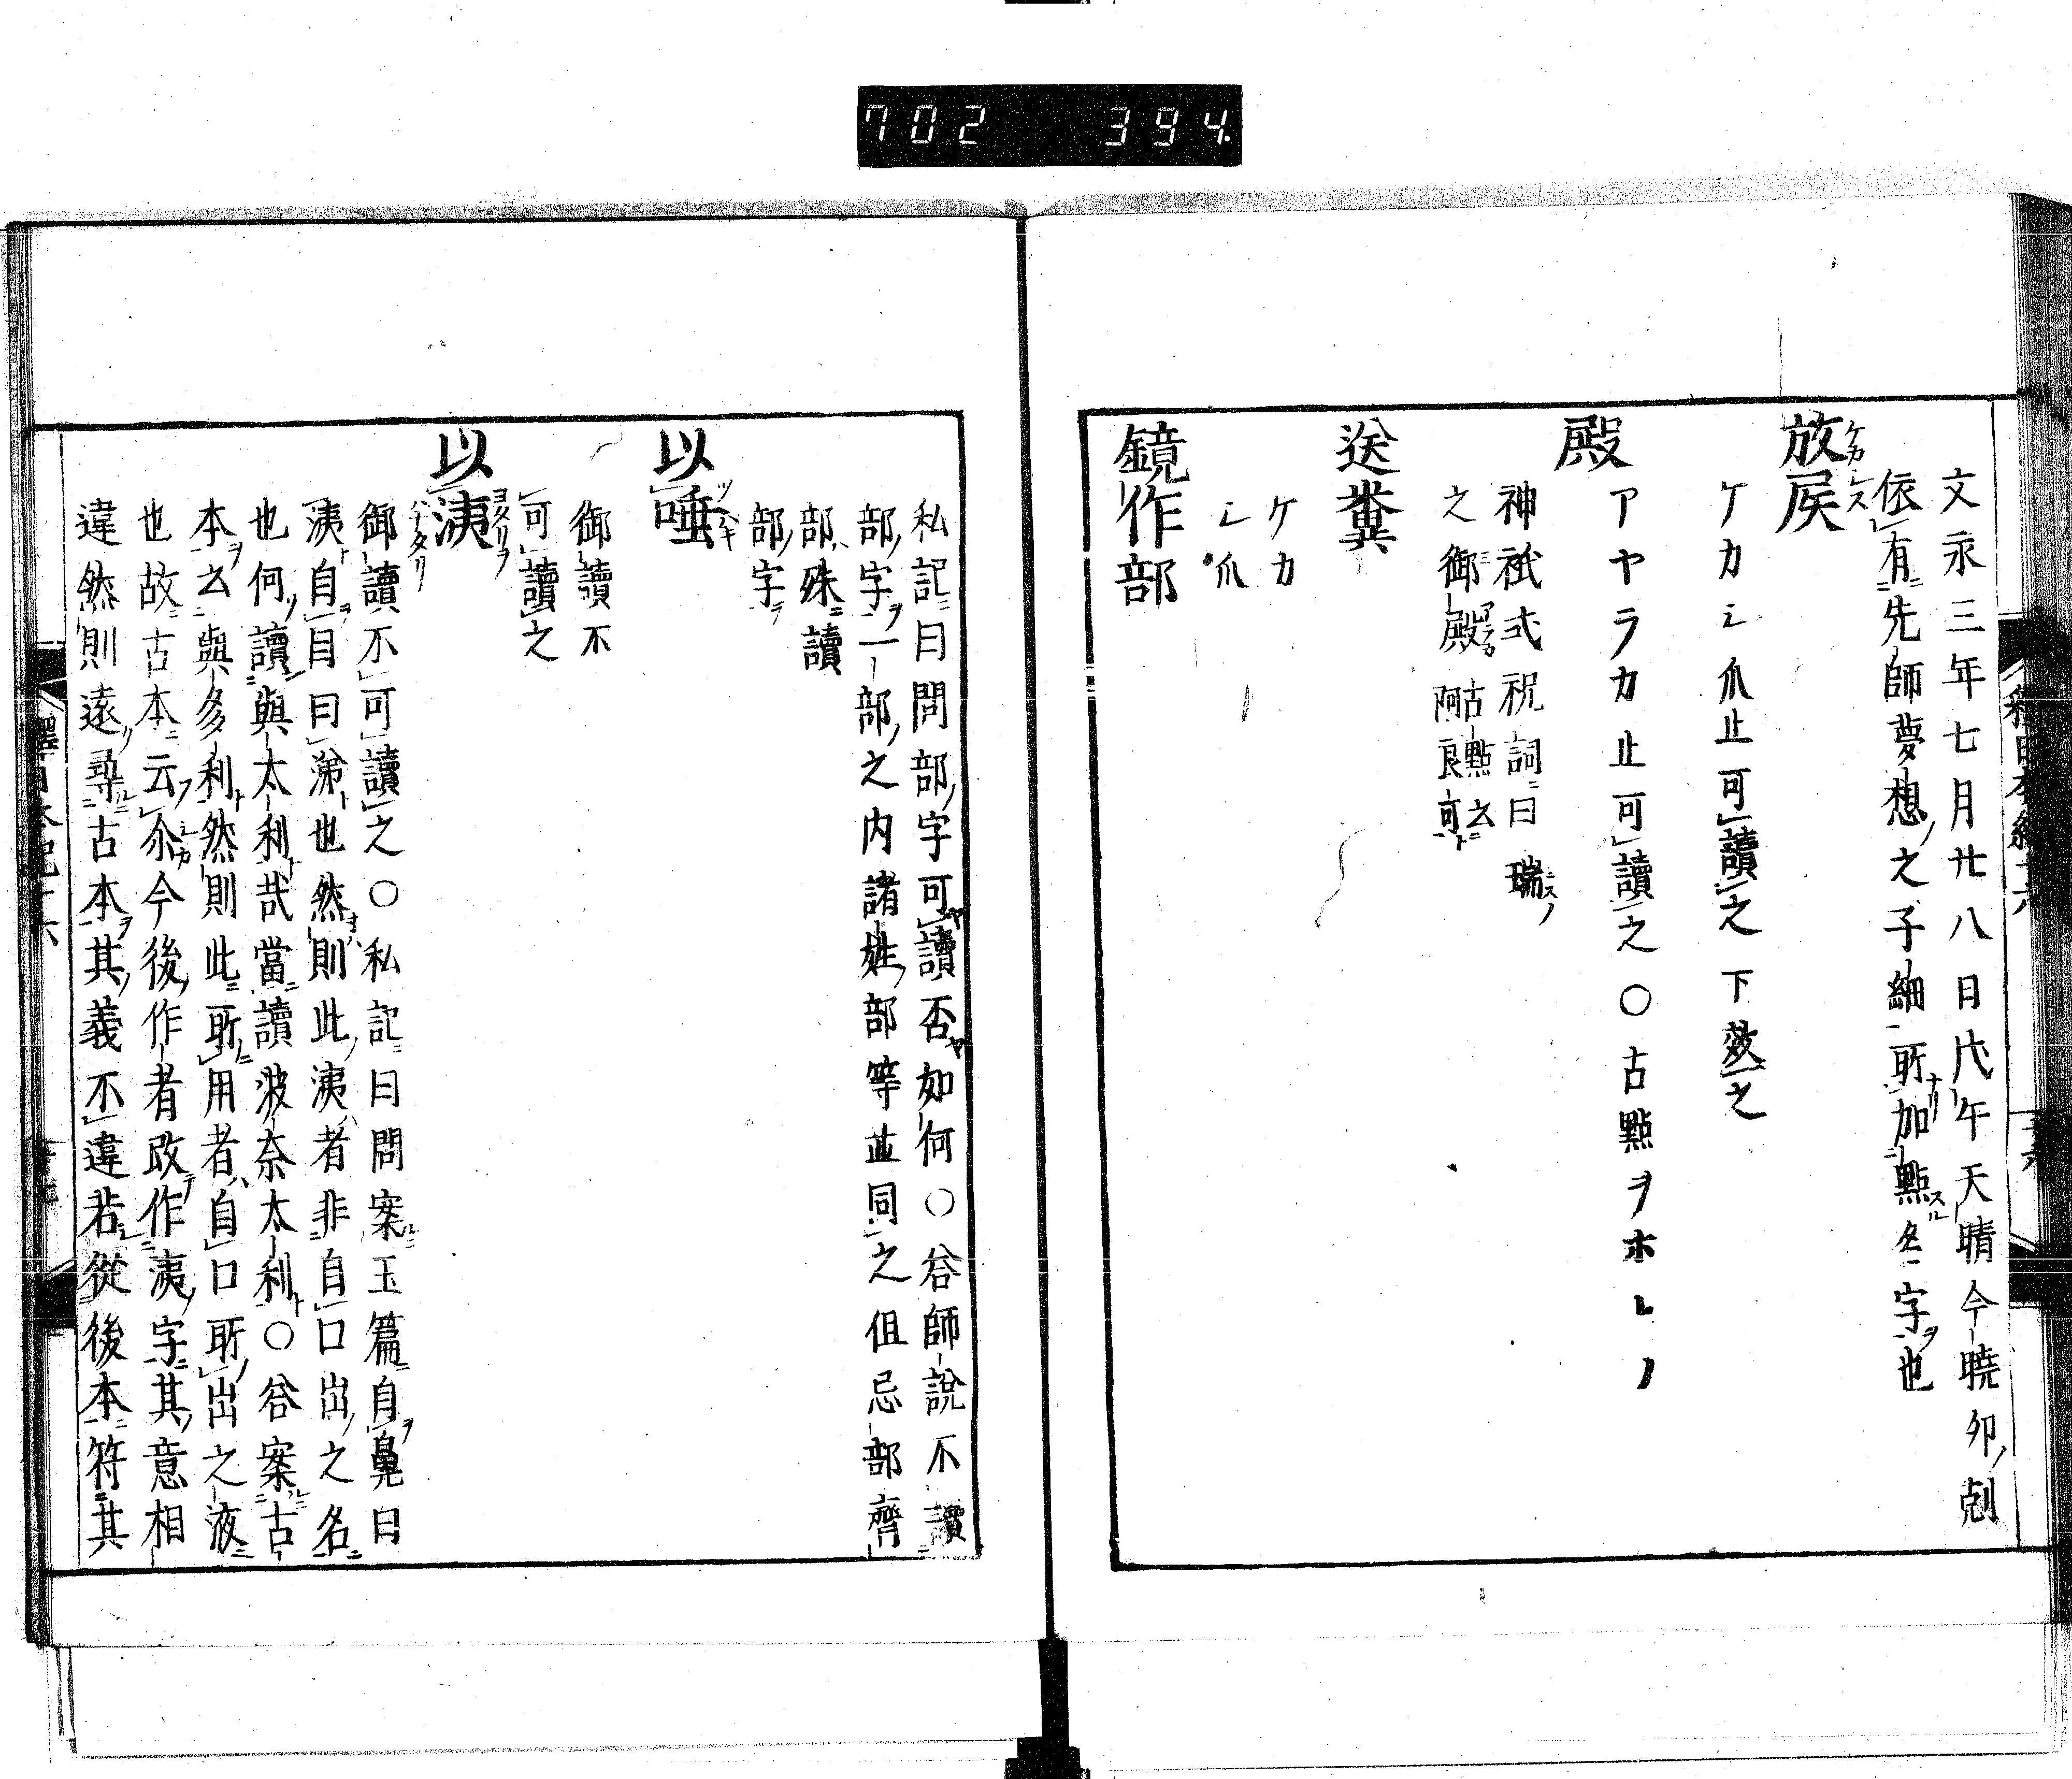 702 394
文永三年七月廿八日戊午天晴今曉卯剋
依有先師夢想之子細所加點名字也
放𡱁
ケカシ爪止可讀之下效之
殿
アヤラカ止可讀之○古點ヲホトノ
神祇式祝詞曰瑞
之御殿古點云阿良可
送糞
ケカ
シ爪
鏡作部
私記曰問部字可讀否如何○答師說不讀
部字一部之内諸姓部等並同之但忌部齊
部殊讀
部字
以唾
御讀不
可讀之
以洟
御讀不可讀之○私記曰問案玉篇自鼻曰
洟自目曰涕也然則此洟者非自口出之名
也何讀與太利哉當讀波奈太利○答案古
本云與多利然則此所用者自口所出之液
也故古本云尒今後作者改作洟字其意相
違然則遠尋古本其義不違若從後本符其